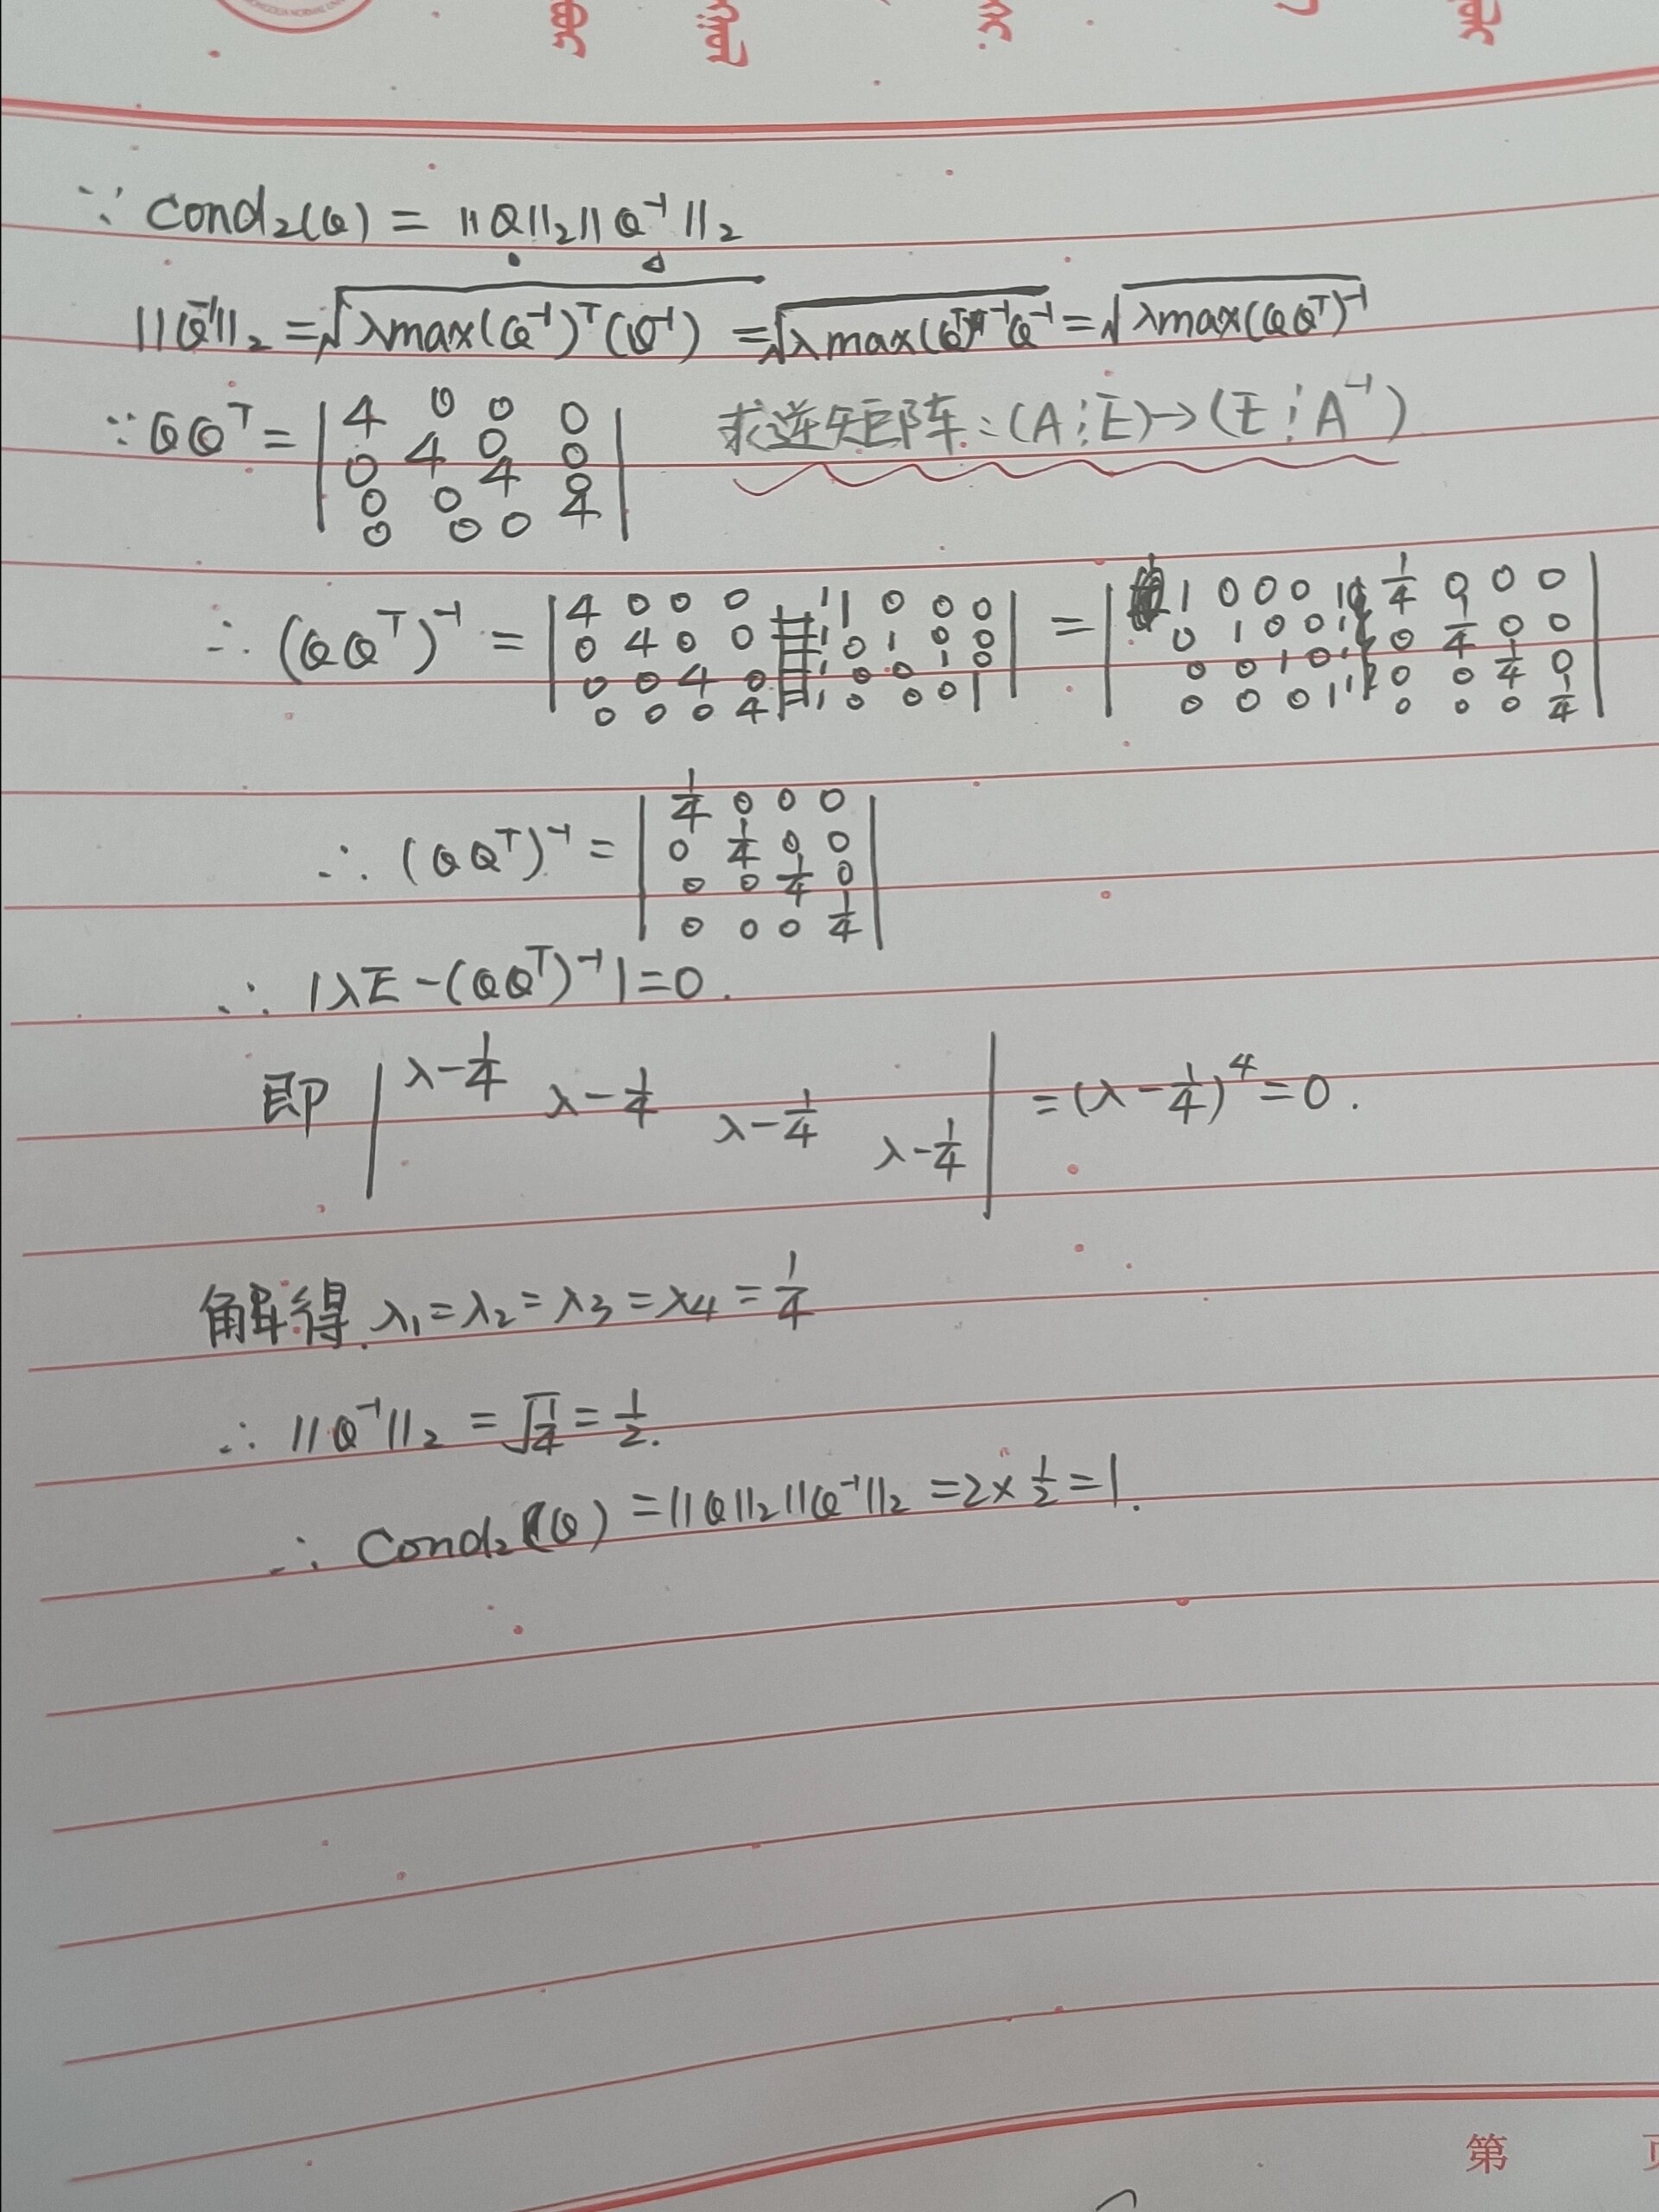 ∵ Cond₂(Q) = ||Q||₂||Q⁻¹||₂
||Q⁻¹||₂ = √λmax(Q⁻¹)ᵀ(Q⁻¹) = √λmax(Qᵀ)⁻¹Q⁻¹ = √λmax(QQᵀ)⁻¹
∵ QQᵀ = | 4 0 0 0 | 求逆矩阵:(A¦E)→(E¦A⁻¹)
0 4 0 0
0 0 4 0
0 0 0 4
∴ (QQᵀ)⁻¹ = | 4 0 0 0 ¦ 1 0 0 0 | = | 1 0 0 0 ¦ 1/4 0 0 0 |
0 4 0 0 ¦ 0 1 0 0 0 1 0 0 ¦ 0 1/4 0 0
0 0 4 0 ¦ 0 0 1 0 0 0 1 0 ¦ 0 0 1/4 0
0 0 0 4 ¦ 0 0 0 1 0 0 0 1 ¦ 0 0 0 1/4
∴ (QQᵀ)⁻¹ = | 1/4 0 0 0 |
0 1/4 0 0
0 0 1/4 0
0 0 0 1/4
∴ |λE-(QQᵀ)⁻¹|=0.
即 | λ-1/4 λ-1/4 λ-1/4 λ-1/4 | = (λ-1/4)⁴=0.
解得 λ₁=λ₂=λ3=λ4=1/4
∴ ||Q⁻¹||₂ = √1/4 = 1/2.
∴ Cond₂(Q) = ||Q||₂||Q⁻¹||₂ = 2×1/2 = 1.
第